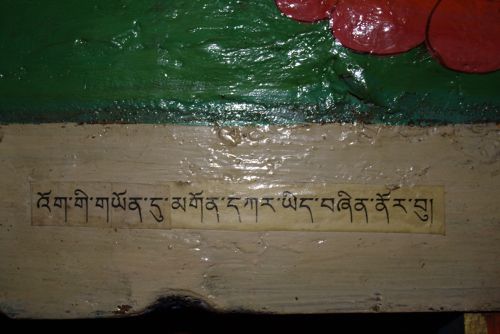 འོག་གི་གཡོན་དུ་མགོན་དཀར་ཡིད་བཞིན་ནོར་བུ།